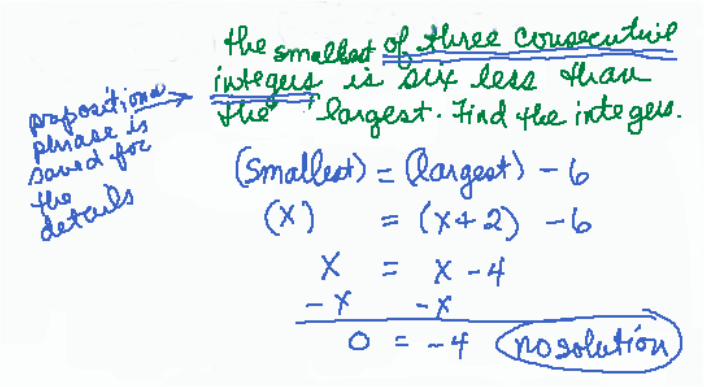 the smallest of three consecutive
integers is six less than
the largest. Find the integers.
prepositional
phrase is
saved for
the
details
(smallest) = (largest) - 6
(x) = (x+2) - 6
x = x - 4
-x -x
0 = -4 no solution